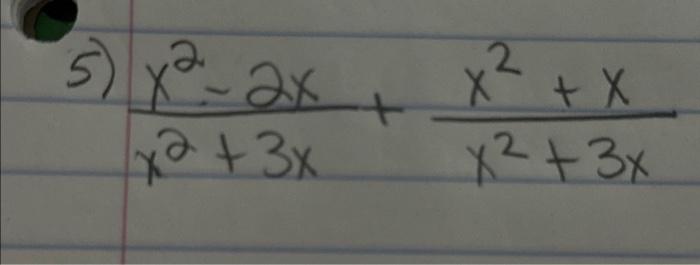 5) x² - 2x / x² + 3x + x² + x / x² + 3x